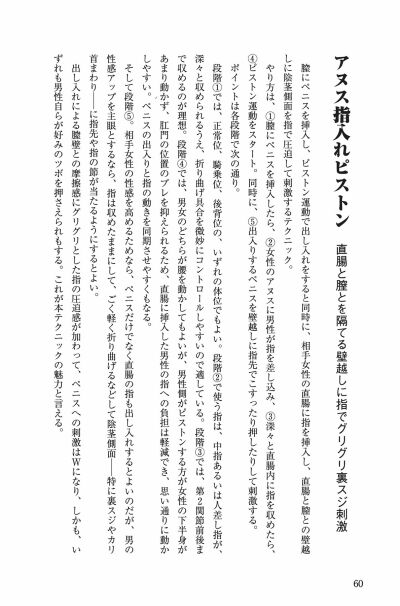 アヌス指入れピストン　直腸と膣とを隔てる壁越しに指でグリグリ裏スジ刺激
膣にペニスを挿入し、ピストン運動で出し入れをすると同時に、相手女性の直腸に指を挿入し、直腸と膣との壁越
しに陰茎側面を指で圧迫して刺激するテクニック。
やり方は、①膣にペニスを挿入したら、②女性のアヌスに男性が指を差し込み、③深々と直腸内に指を収めたら、
④ピストン運動をスタート。同時に、⑤出入りするペニスを壁越しに指先でこすったり押したりして刺激する。
ポイントは各段階で次の通り。
段階①では、正常位、騎乗位、後背位の、いずれの体位でもよい。段階②で使う指は、中指あるいは人差し指が、
深々と収められるうえ、折り曲げ具合を微妙にコントロールしやすいので適している。段階③では、第2関節前後ま
で収めるのが理想。段階④では、男女のどちらが腰を動かしてもよいが、男性側がピストンする方が女性の下半身が
あまり動かず、肛門の位置のブレを抑えられるため、直腸に挿入した男性の指への負担は軽減でき、思い通りに動か
しやすい。ペニスの出入りと指の動きを同期させやすくもなる。
そして段階⑤。相手女性の性感を高めるためなら、ペニスだけでなく直腸の指も出し入れするとよいのだが、男の
性感アップを主眼とするなら、指は収めたままにして、ごく軽く折り曲げるなどして陰茎側面――特に裏スジやカリ
首まわり――に指先や指の節が当たるようにするとよい。
出し入れによる膣壁との摩擦感にグリグリとした指の圧迫感が加わって、ペニスへの刺激はWになり、しかも、い
ずれも男性自らが好みのツボを押さえられもする。これが本テクニックの魅力と言える。
60